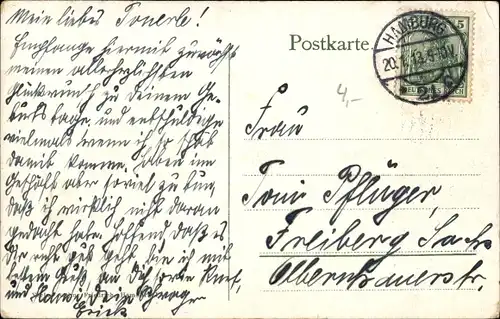 Mein liebes Tonerle!
Empfange hiermit zunächst
meinen allerherzlichsten
Glückwunsch zu Deinem Ge-
burtstage, und entschuldige
vielmals wenn ich so spät
damit komme. Haben im
Geschäft aber soviel zu tun,
daß ich wirklich nicht daran
gedacht habe. Hoffend, daß es
Dir recht gut geht, bin ich mit
bestem Gruß an Dich, sowie
und Hanni Dein Schwager
Erich
Postkarte.
HAMBURG
20.
13.
5
4,-
Frau
Toni Pflüger,
Freiberg Sachs
Olbernhauerstr.